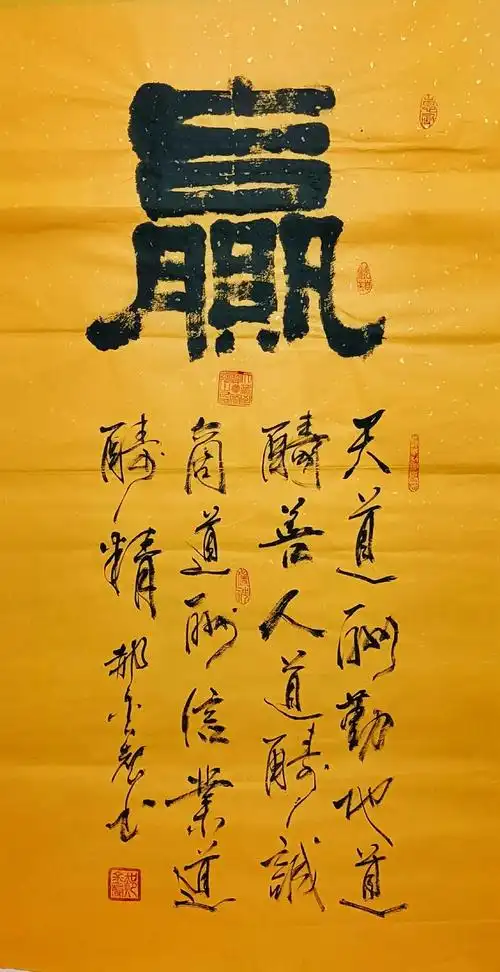 贏
天道酬勤地道
酬善人道酬誠
商道酬信業道
酬精